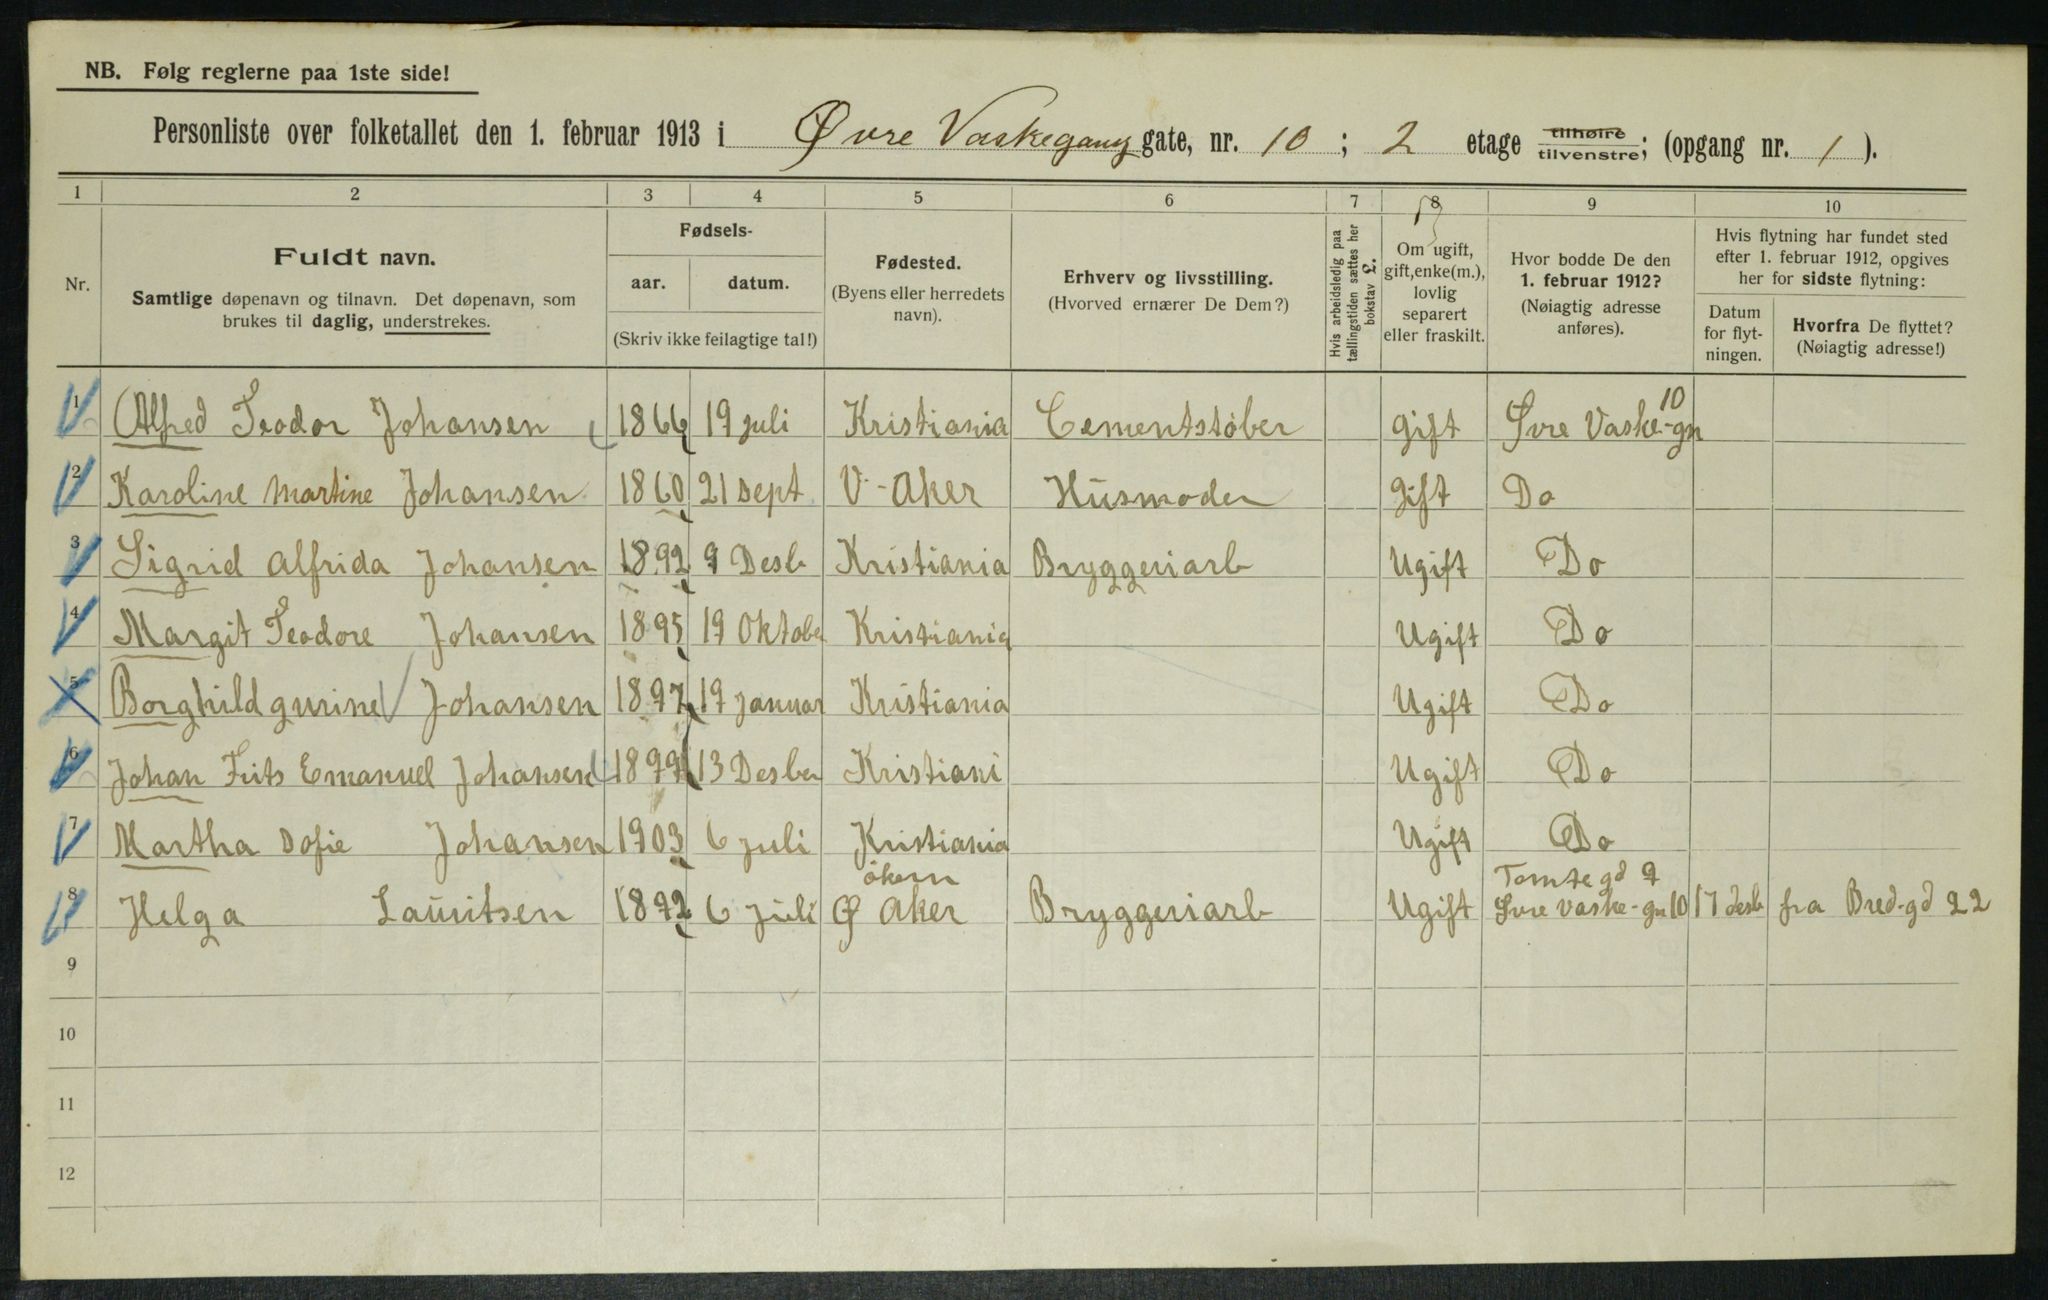 NB. Følg reglerne paa 1ste side!
Personliste over folketallet den 1. februar 1913 i Øvre Vaskegang gate, nr. 10 ; 2 etage tilhøire tilvenstre; (opgang nr. 1 ).
1 2 3 4 5 6 7 8 9 10
Nr.
Fuldt navn.
Samtlige døpenavn og tilnavn. Det døpenavn, som
brukes til daglig, understrekes.
Fødsels-
aar. datum.
(Skriv ikke feilagtige tal!)
Fødested.
(Byens eller herredets
navn).
Erhverv og livsstilling.
(Hvorved ernærer De Dem?)
Hvis arbeidsledig paa
tællingstiden sættes her
bokstav L.
Om ugift,
gift, enke(m.),
lovlig
separert
eller fraskilt.
Hvor bodde De den
1. februar 1912?
(Nøiagtig adresse
anføres).
Hvis flytning har fundet sted
efter 1. februar 1912, opgives
her for sidste flytning:
Datum
for flyt-
ningen.
Hvorfra De flyttet?
(Nøiagtig adresse!)
1 Alfred Teodor Johansen 1866 19 juli Kristiania Cementstøber gift Øvre Vaske-gn 10
2 Karoline Martine Johansen 1860 21 sept V-Aker Husmoder gift Do
3 Sigrid Alfrida Johansen 1892 9 Desb Kristiania Bryggeriarb Ugift Do
4 Margit Teodore Johansen 1895 19 Oktober Kristiania Ugift Do
5 Borghild gurine Johansen 1897 19 januar Kristiania Ugift Do
6 Johan Frits Emanuel Johansen 1899 13 Desber Kristiani Ugift Do
7 Martha Sofie Johansen 1903 6 juli Kristiania Ugift Do
økern Tomtegd 9
8 Helga Lauritsen 1892 6 juli Ø Aker Bryggeriarb Ugift Øvre Vaske-gn 10 17 desb fra Bred-gd 22
9
10
11
12